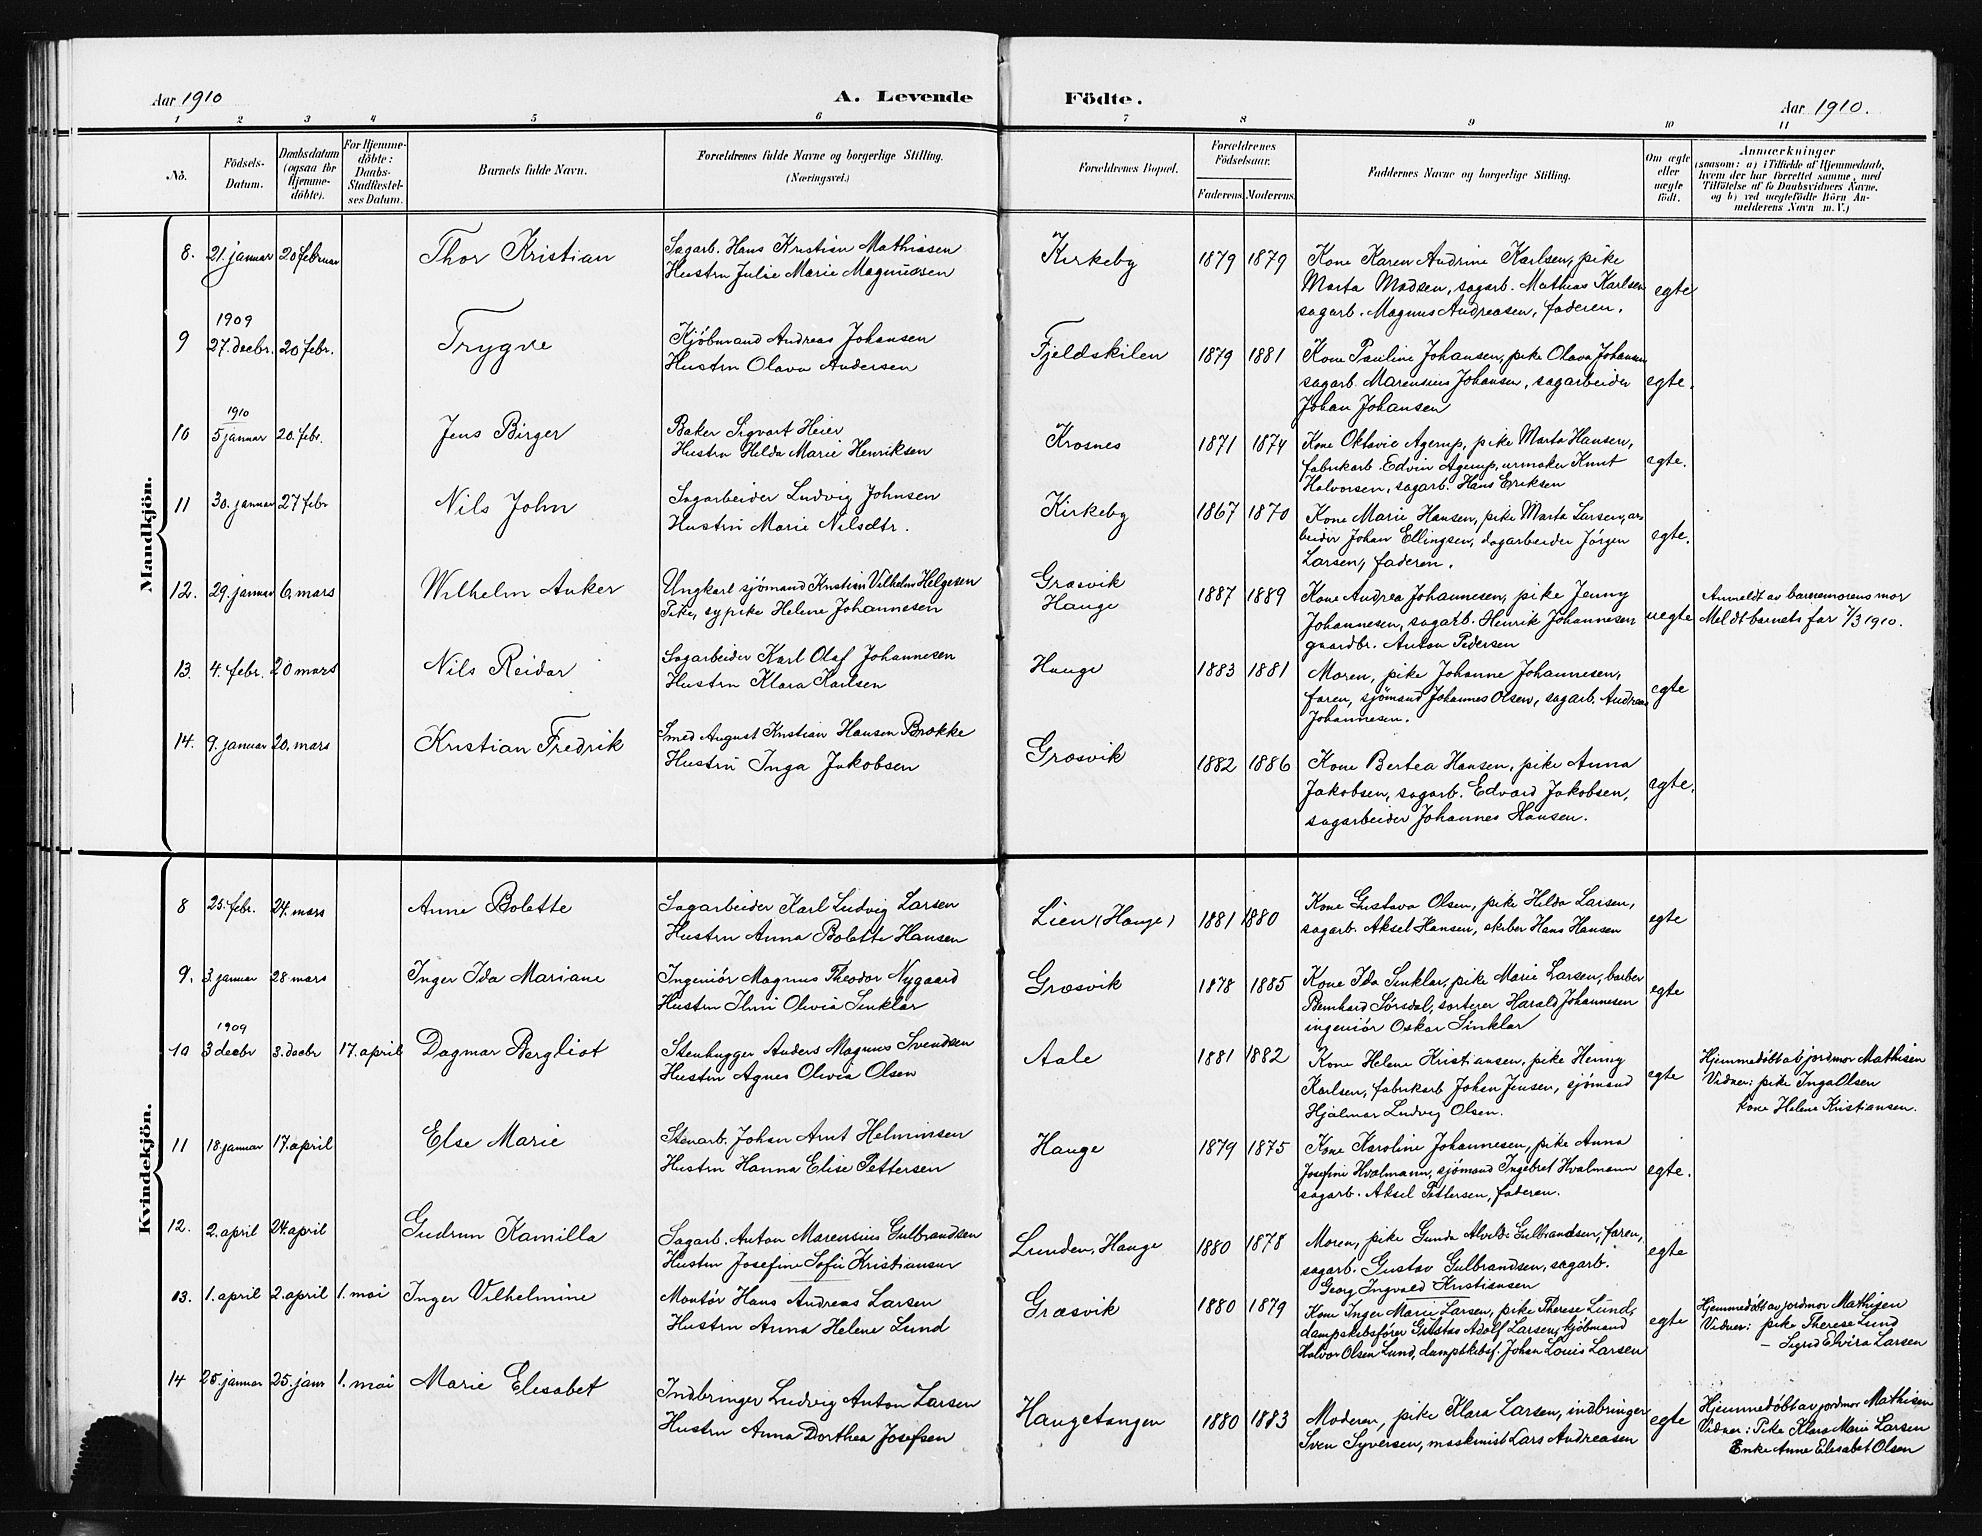 Aar 1910
A. Levende
Födte.
Aar 1910.
1 2 3 4 5 6 7 8 9 10 11
No.
Födsels-
Datum.
Daabsdatum
(ogsaa for
Hjemme-
döbte).
For Hjemme-
döbte:
Daabs-
Stadfæstel-
ses Datum.
Barnets fulde Navn.
Forældrenes fulde Navne og borgerlige Stilling.
(Næringsvei.)
Forældrenes Bopæl.
Forældrenes
Födselsaar.
Faderens. Moderens.
Faddernes Navne og borgerlige Stilling.
Om ægte
eller
uægte
födt.
Anmærkninger
(saasom: a) i Tilfælde af Hjemmedaab,
hvem der har forrettet samme, med
Tilföielse af to Daabsvidners Navne,
og b) ved uægtefödte Börn An-
melderens Navn m. V.)
Mandkjön.
8. 21. januar 20 februar Thor Kristian
Sagarb. Hans Kristian Mathiasen
Hustru Julie Marie Magnussen
Kirkeby 1879 1879
Kone Karen Andrine Karlsen, pike
Marta Madsen, sagarb. Mathias Karlsen
sagarb. Magnus Andreasen, faderen.
egte
1909
9 27. decbr. 20 febr. Trygve
Kjöbmand Andreas Johansen
Hustru Olava Andersen
Fjeldskilen 1879 1881
Kone Pauline Johansen, pike Olava Johansen
sagarb. Marensius Johansen, sagarbeider
Johan Johansen
egte.
1910
10 5 januar 20. febr. Jens Birger
Baker Sigvart Heier
Hustru Hilda Marie Henriksen
Krosnes 1871 1874
Kone Oktavie Agerup, pike Marta Hansen,
fabrikarb. Edvin Agerup, urmaker Knut
Halvorsen, sagarb. Hans Eriksen
egte.
11 30. januar 27 febr Nils John
Sagarbeider Ludvig Johnsen
Hustru Marie Nilsdtr.
Kirkeby 1867 1870
Kone Marie Hansen, pike Marta Larsen, ar-
beider Johan Ellingsen, dagarbeider Jörgen
Larsen, faderen.
egte.
12. 29. januar 6. mars Wilhelm Anker
Ungkarl sjömand Kristian Vilhelm Helgesen
Pike, sypike Helene Johannesen
Græsvik
Hauge
1887 1889
Kone Andrea Johannesen, pike Jenny
Johannesen, sagarb. Henrik Johannesen
gaardbr. Anton Pedersen
uegte
Anmeldt av barnemorens mor
Meldt barnets far 7/3 1910.
13. 4. febr. 20 mars Nils Reidar
Sagarbeider Karl Olaf Johannesen
Hustru Klara Karlsen
Hauge 1883 1881
Moren, pike Johanne Johannesen,
faren, sjömand Johannes Olsen, sagarb. Andreas
Johannesen.
egte
14. 9. januar 20. mars Kristian Fredrik
Smed August Kristian Hansen Brække
Hustru Inga Jakobsen
Græsvik 1882 1886
Kone Bertea Hansen, pike Anna
Jakobsen, sagarb. Edvard Jakobsen,
sagarbeider Johannes Hansen.
egte.
Kvindekjön.
8 25. febr. 24. mars Anne Bolette
Sagarbeider Karl Ludvig Larsen
Hustru Anna Bolette Hansen
Lien (Hauge) 1881 1880
Kone Gustava Olsen, pike Hilda Larsen,
sagarb. Aksel Hansen, skriber Hans Hansen
egte
9. 3. januar 28 mars Inger Ida Mariane
Ingeniör Magnus Theodor Nygaard
Hustru Ilmi Olivia Sinklar
Græsvik 1878 1885
Kone Ida Sinklar, pike Marie Larsen, barber
Bernhard Sørsdal, sorterer Harald Johannesen
ingeniör Oskar Sinklar
egte
1909
10 3 decbr 3. decbr 17. april Dagmar Bergliot
Stenhugger Anders Magnus Svendsen
Hustru Agnes Olivia Olsen
Aale 1881 1882
Kone Helene Kristiansen, pike Henny
Karlsen, fabrikarb Johan Jensen, sjömand
Hjalmar Ludvig Olsen.
egte
Hjemmedøbt av jordmor Mathisen
Vidner: pike Inga Olsen
kone Helene Kristiansen.
11 18. januar 17. april Else Marie
Stenarb. Johan Arnt Helminsen
Hustru Hanna Elise Pettersen
Hauge 1879 1875
Kone Karoline Johannesen, pike Anna
Josefine Hvalmann, sjömand Ingebret Hvalmann
sagarb. Aksel Pettersen, faderen.
egte.
12. 2. april 24. april Gudrun Kamilla
Sagarb. Anton Marensius Gulbrandsen
Hustru Josefine Sofie Kristiansen
Lunden, Hauge 1880 1878
Moren, pike Gunda Alvilde Gulbrandsen, faren,
sagarb. Gustav Gulbrandsen, sagarb.
Georg Ingvald Kristiansen
egte
13. 1. april 2. april 1. mai Inger Vilhelmine
Montör Hans Andreas Larsen
Hustru Anna Helene Lund
Græsvik 1880 1879
Kone Inger Marie Larsen, pike Therese Lund,
dampskibsfører Gustav Adolf Larsen, kjöbmand
Halvor Olsen Lund, dampskibsf. Johan Louis Larsen
egte
Hjemmedøbt av jordmor Mathisen
Vidner: pike Therese Lund
— Sigrid Elvira Larsen
14 25. januar 25. janr 1. mai Marie Elisabet
Indbringer Ludvig Anton Larsen
Hustru Anna Dorthea Josefsen
Haugetangen 1880 1883
Moderen, pike Klara Larsen, indbringer
Sven Syversen, maskinist Lars Andreasen
egte
Hjemmedøbt av jordmor Mathisen
Vidner: Pike Klara Marie Larsen
Enke Anne Elisabet Olsen